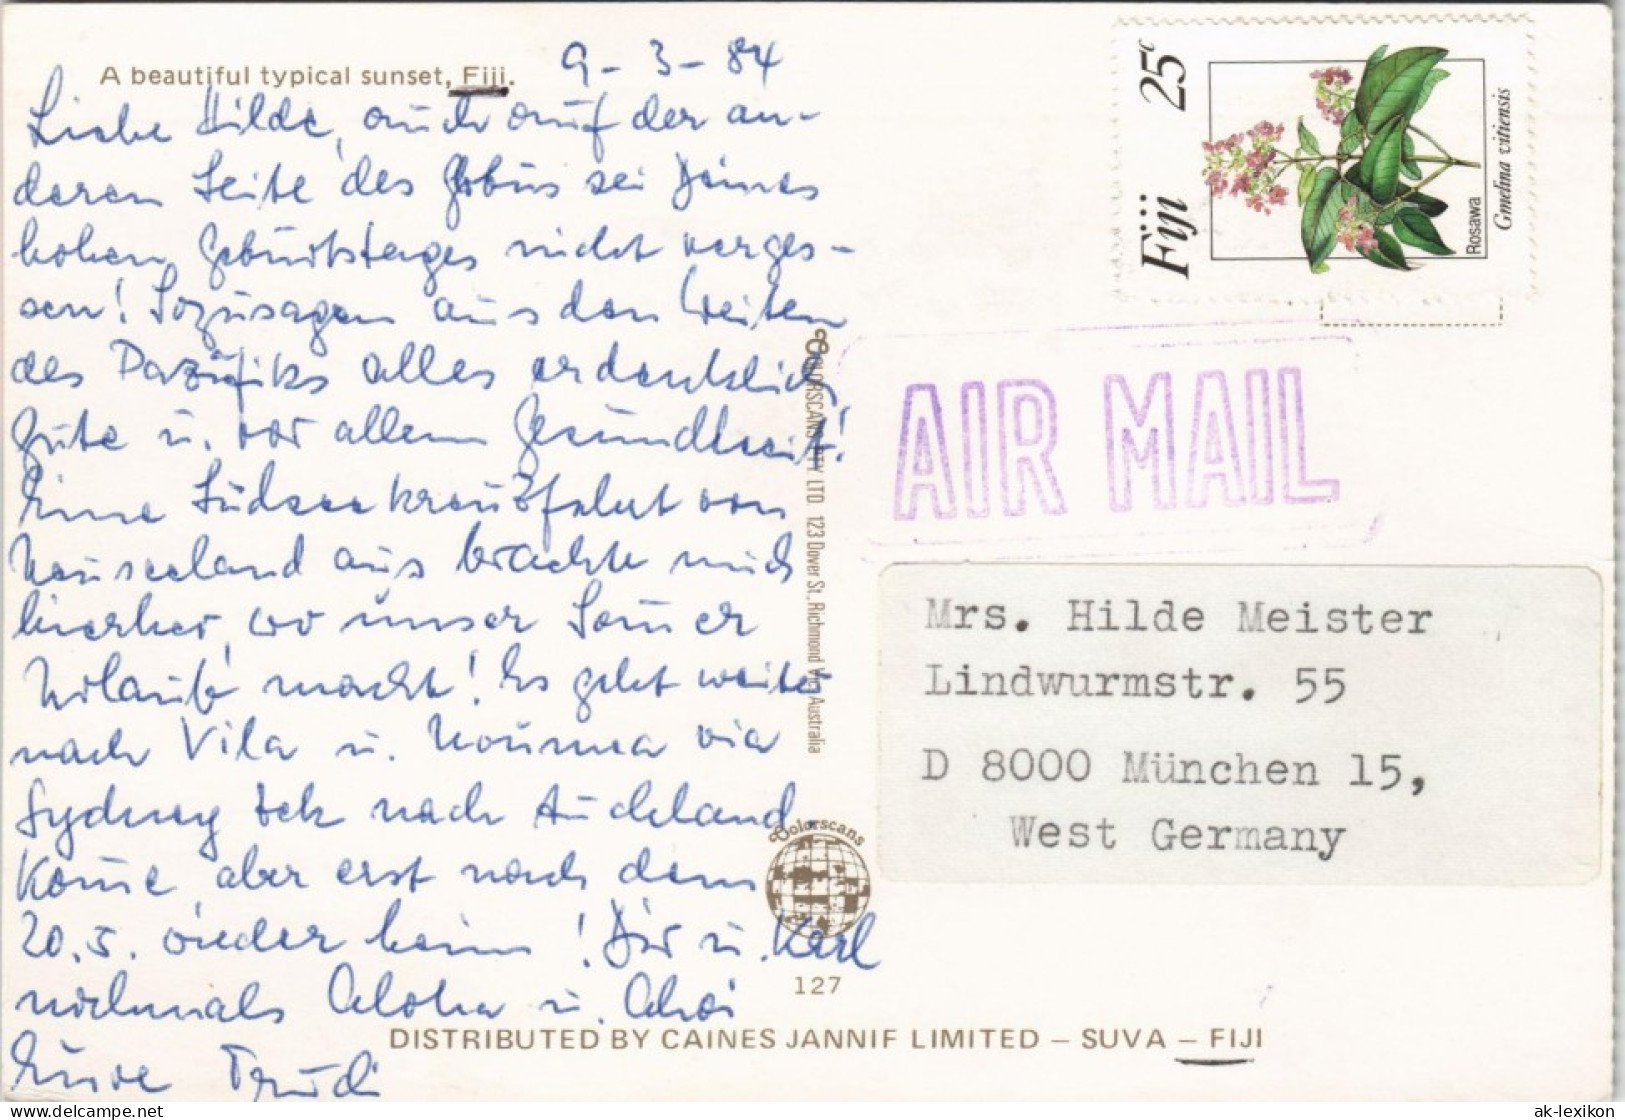 A beautiful typical sunset, Fiji.
9-3-84
Liebe Hilde, auch auf der an-
deren Seite des Globus sei Deines
hohen Geburtstages nicht verges-
sen! Sozusagen aus den Weiten
des Pazifiks alles erdenklich
Gute u. vor allem Gesundheit!
Eine Südseekreuzfahrt von
Neuseeland aus brachte mich
hierher, wo unser
Urlaub macht! Es geht weiter
nach Vila u. Noumea via
Sydney zck nach Auckland
Kom̄e aber erst nach dem
20.5. wieder heim! Dir u. Karl
nochmals Aloha u. Ahoi
Eure Trudi
Fiji 25c
Rosawa
Gmelina vitiensis
AIR MAIL
COLORSCANS PTY. LTD. 123 Dover St., Richmond Vic. Australia
Mrs. Hilde Meister
Lindwurmstr. 55
D 8000 München 15,
West Germany
Colorscans
127
DISTRIBUTED BY CAINES JANNIF LIMITED – SUVA – FIJI
delcampe.net
ak-lexikon